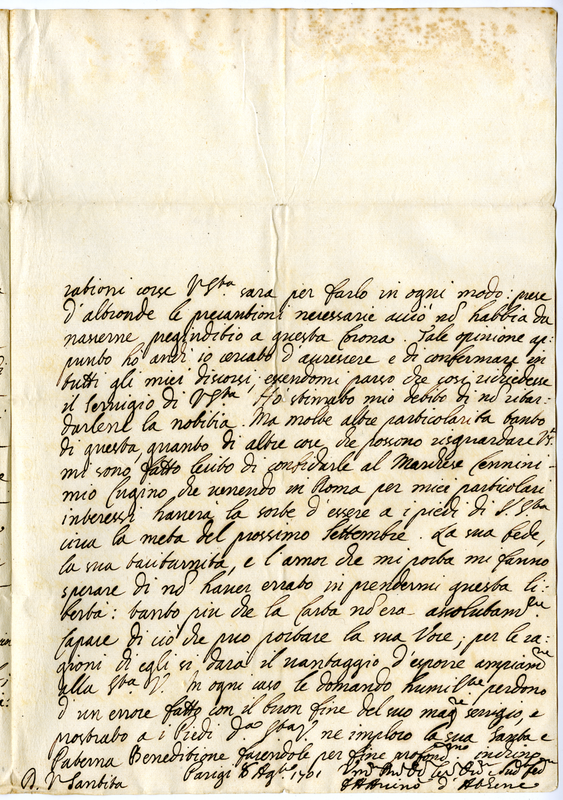 rationi corse V. S.ta sarà per farlo in ogni modo: prese
d'altronde le precautioni necessarie acciò nõ habbia da
nascerne pregiuditio a questa Corona. Tale opinione ap:
punto ho anch'io cercato d'accrescere e di confermare in
tutti gli miei discorsi, essendomi parso che così richiedesse
il servigio di V. S.ta, Ho stimato mio debito di nõ ritar:
darlene la notitia. Ma molte altre particolarità tanto
di questa quanto di altre cose, che possono risguardare
mi sono fatto lecito di confidarle al Marchese Cennini
mio Cugino, che venendo in Roma per miei particolari
interessi haverà la sorte d'essere a i piedi di V. S.ta
circa la metà del prossimo Settembre. La sua fede,
la sua taciturnità, e l'amor che mi porta mi fanno
sperare di nõ haver errato in prendermi questa li:
bertà: tanto più che la Carta nõ era assolutam.te
Capace di ciò che può portare la sua Voce, per le ra:
gioni di egli si darà il vantaggio d'esporre ampiam.te
alla S.tà V. In ogni caso le domando humil.te perdono
d'un errore fatto con il buon fine del suo mag.r servigio, e
prostrato a i Piedi d.a S.tà V. ne imploro la sua Santa e
Paterna Beneditione facendole per fine profond.mo inchino
Parigi 8 Ag.to 1701
D. V. Santità
d'Atene